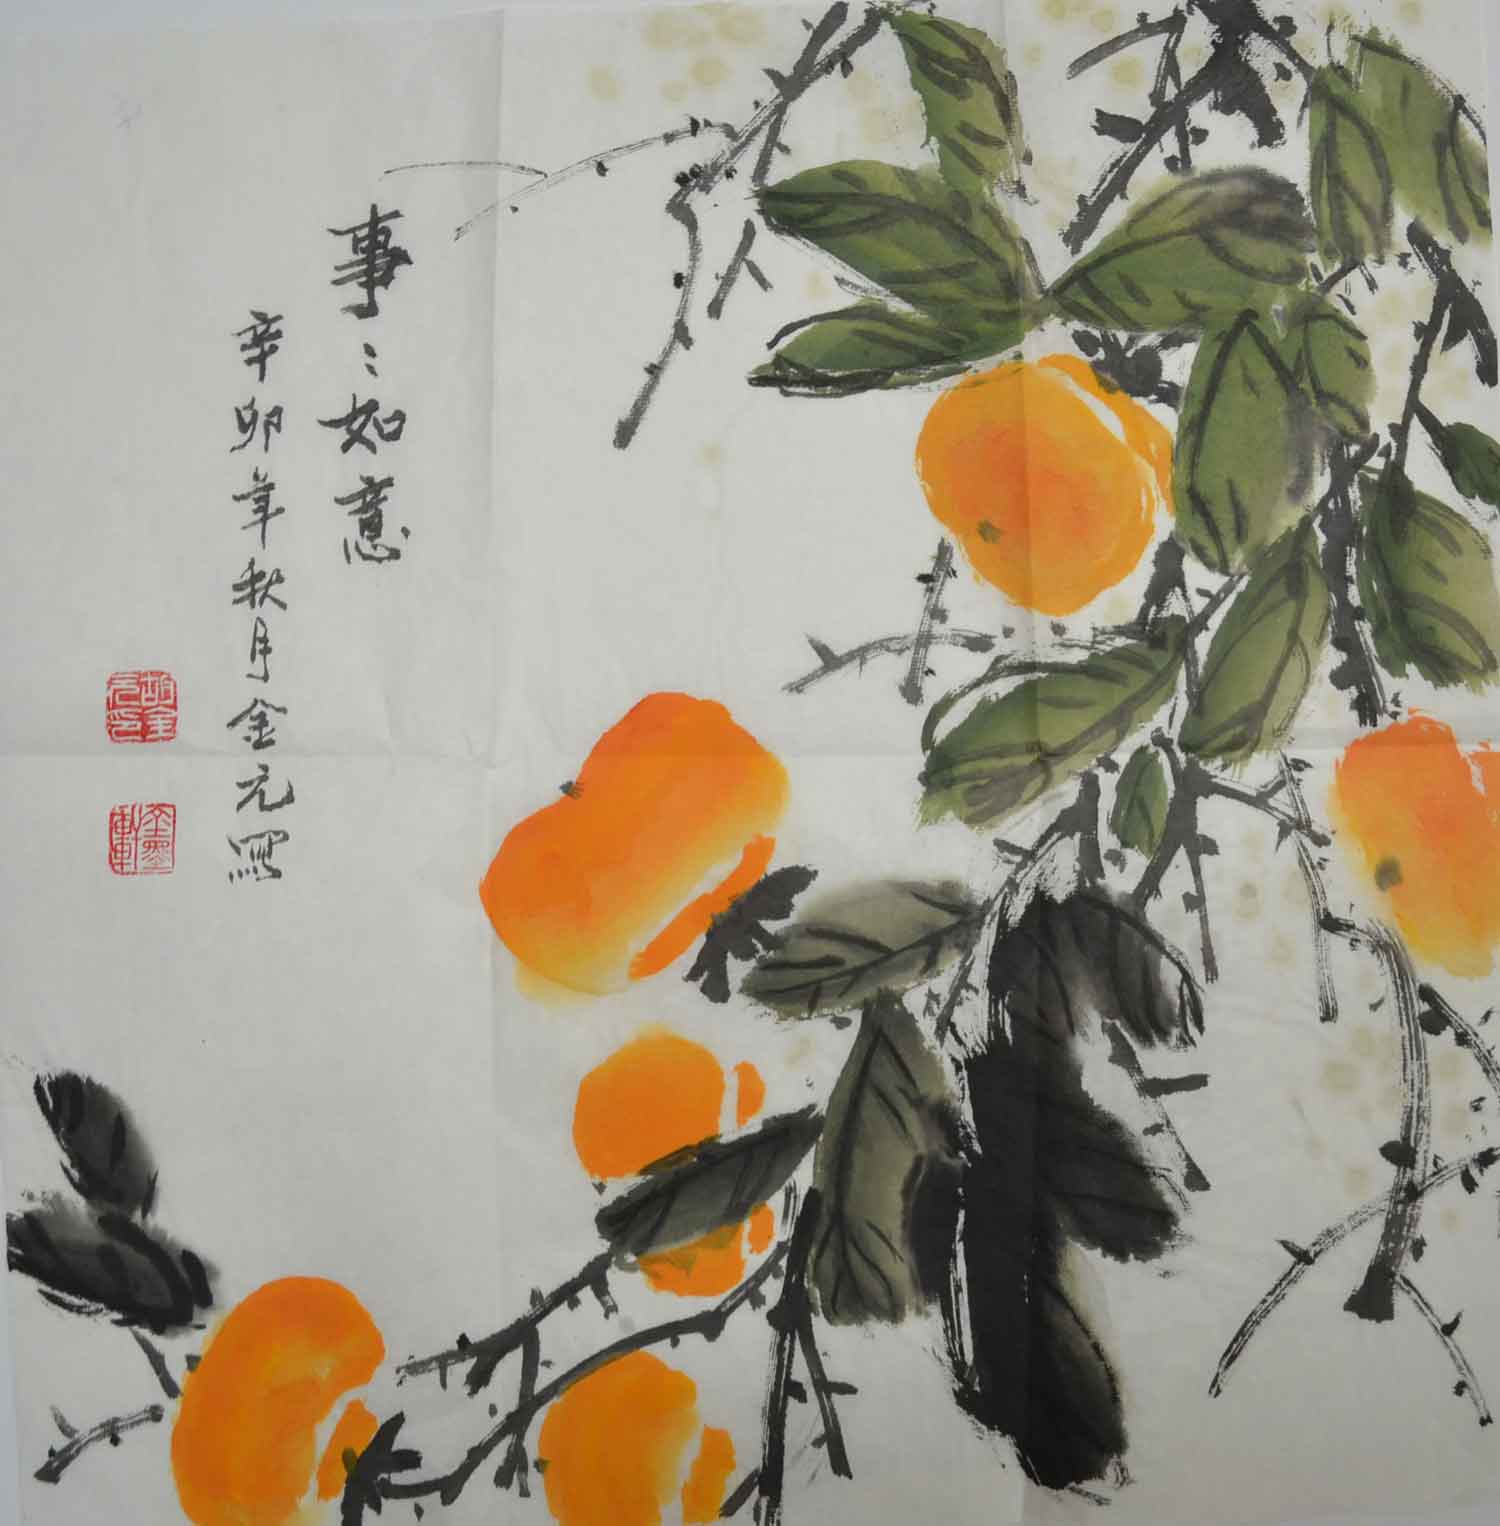 事〻如意
辛卯年秋月金元寫